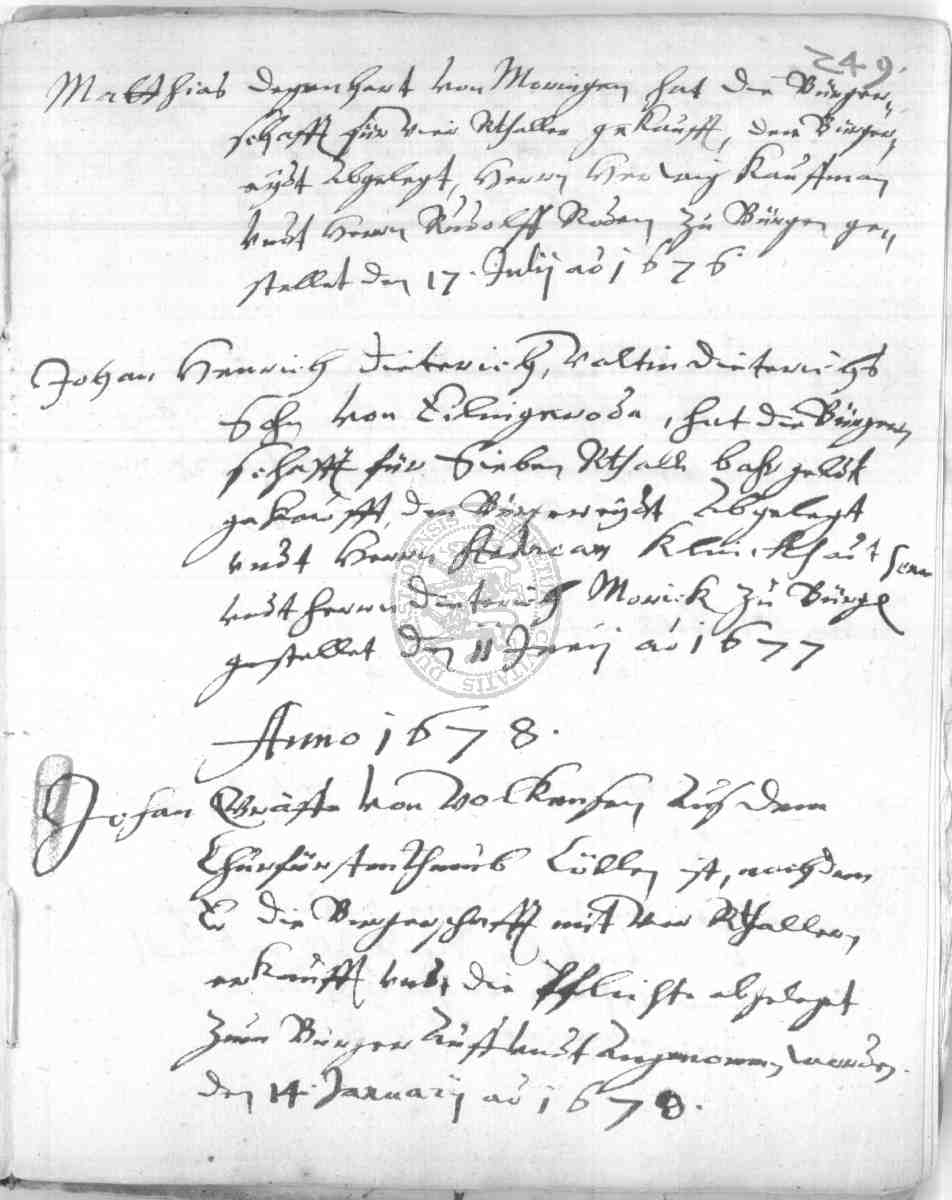 249.
Matthias Degenhart von Moringen hat die Bürger,,
schafft für vier Rthaller gekaufft, den Bürger,,
eydt Abgelegt, Herrn Herwig Kauffman
undt Herrn Rudolff Rosen zu Bürgen ge,,
stellet den 17. Julij ao 1676
Johan Henrich Dieterich, Valtin Dieterichs
Sohn von , hat die Bürger,,
schafft für Sieben Rthall bahr geldt
gekaufft, den Bürgereydt Abgelegt
undt Herrn Adrian Klinckhart Sen
undt herrn Dieterich Morick zu Bürgē
gestellet den 11 Junij ao 1677
Anno 1678.
Johan Gräffe von Volkensen Auß dem
Churfürstenthumb Cöllen ist, nachdem
Er die Burgerschafft mit vier Rthallern
erkaufft undt die Pflichte abgeleget
Zum Burger Auff undt Angenommen worden.
den 14. Januarij ao 1678.